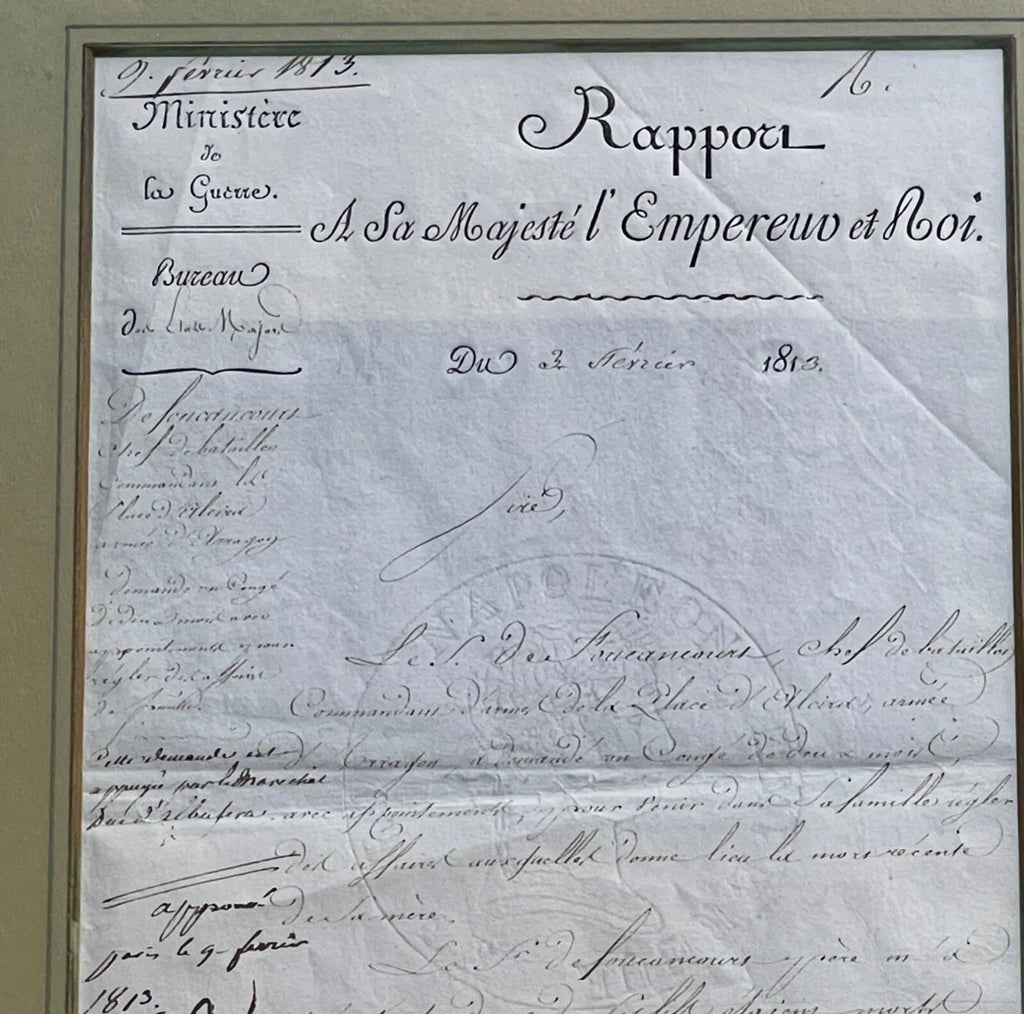 9. février 1813.
Ministère
de
la Guerre.
Bureau
des Etats Majors
A.
Rapport
A Sa Majesté l'Empereur et Roi.
Du 3 Février 1813.
De foucancourt
chef de bataillon
Commandant la
Place d'Alcira
armée d'Arragon
demande un Congé
de deux mois avec
appointements pour
régler des affaires
de famille.
cette demande est
appuyée par le Marechal
Duc d'Albufera.
approuvé
paris le 9 fevrier
1813.
Sire,
NAPOLEON
Le S. de Foucancourt, chef de bataillon
Commandant d'armes de la Place d'Alcira, armée
d'Arragon, a demandé un Congé de deux mois,
avec appointements, pour venir dans sa famille régler
des affaires auxquelles donne lieu la mort récente
de sa mère.
Le Sr. de foucancourt père m'a
morts